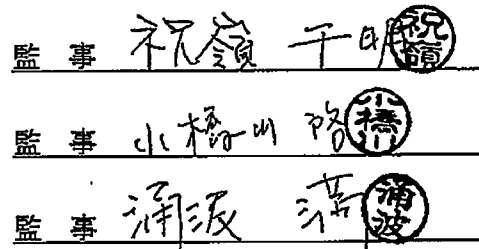 監 事 祝嶺 千明 祝嶺
監 事 小橋川 啓 小橋川
監 事 涌波 涌波